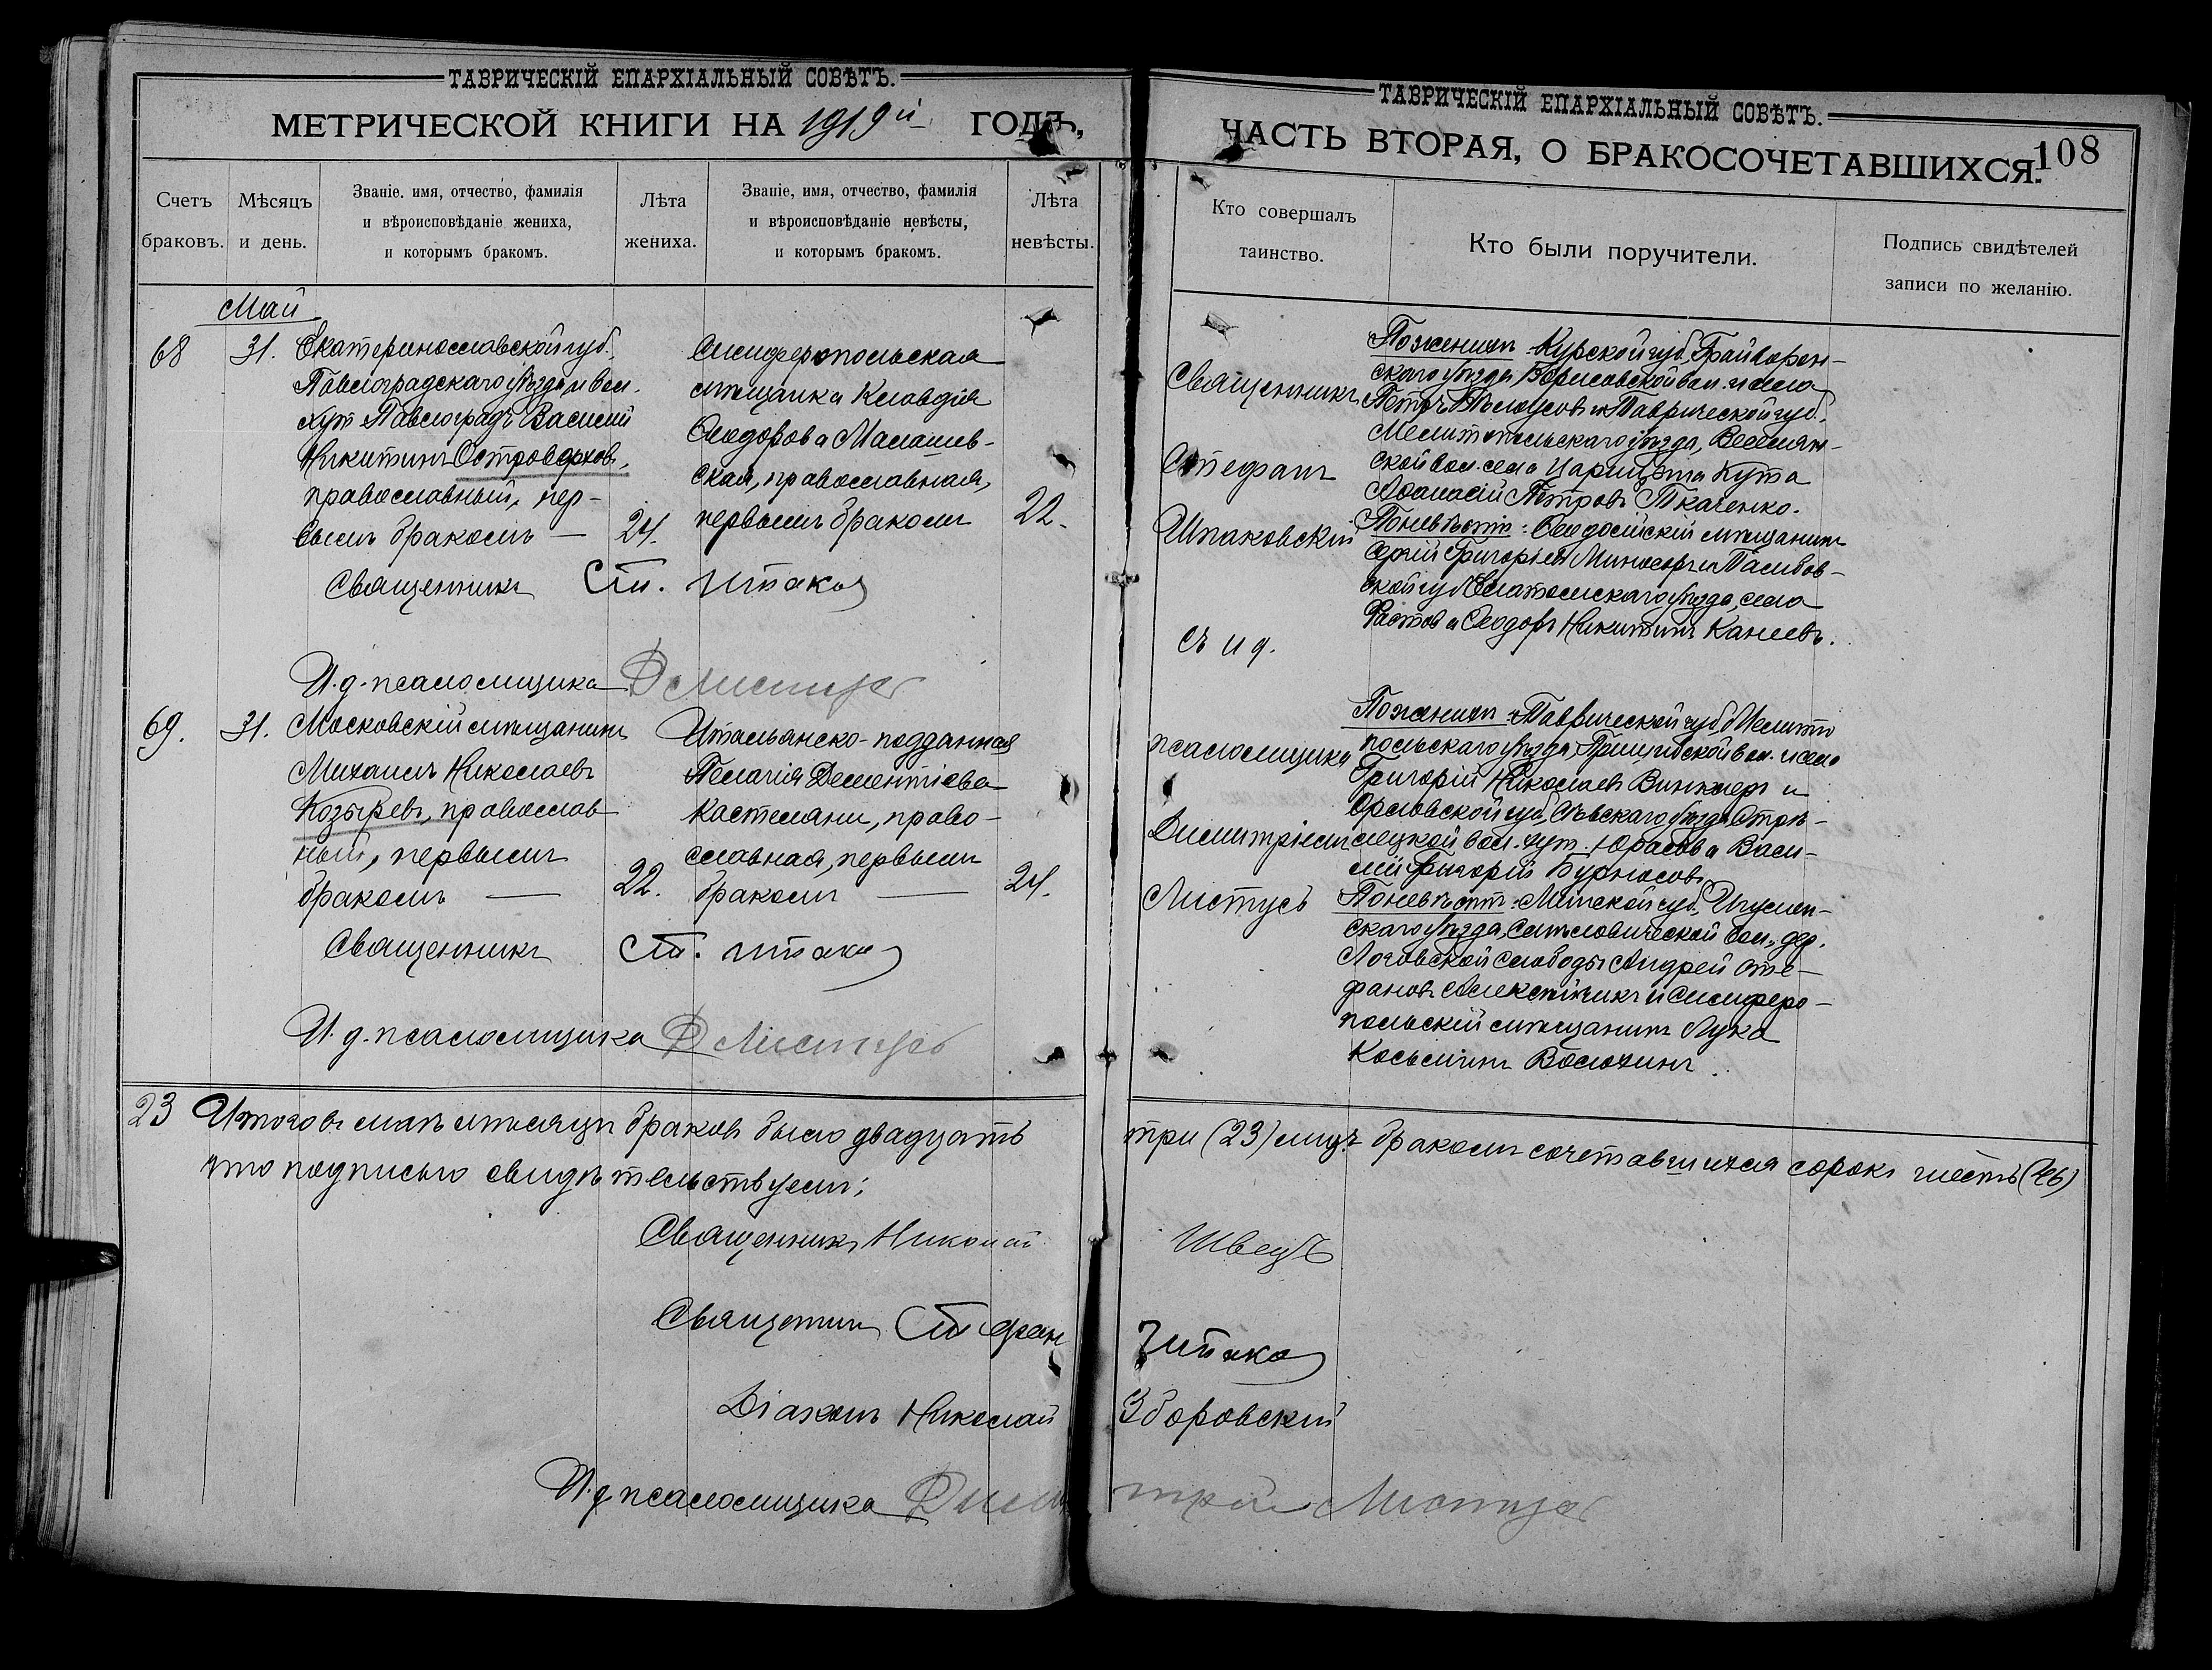 ТАВРИЧЕСКІЙ ЕПАРХІАЛЬНЫЙ СОВѢТЪ.
МЕТРИЧЕСКОЙ КНИГИ НА 1919й ГОДЪ,
Счетъ браковъ.
Мѣсяцъ и день.
Званіе, имя, отчество, фамилія
и вѣроисповѣданіе жениха,
и которымъ бракомъ.
Лѣта жениха.
Званіе, имя, отчество, фамилія
и вѣроисповѣданіе невѣсты,
и которымъ бракомъ.
Лѣта невѣсты.
Май
68
31.
Екатеринославской губ.,
Павлоградскаго уѣзда и вол.
хут Павлоградъ Василий
Никитинъ Островерховъ,
православный, пер-
вымъ бракомъ —
24.
Симферопольская
мѣщанка Клавдія
Ѳеодорова Малашев-
ская, православная,
первымъ бракомъ
22.
Священникъ Ст. Шпака
И. д. псаломщика Д Листусъ
69.
31.
Московскій мѣщанинъ
Михаилъ Николаевъ
Козыревъ, православ
ный, первымъ
бракомъ —
22.
Итальянско-подданная
Пелагія Дементіева
Кастелани, право-
славная, первымъ
бракомъ —
24.
Священникъ Ст. Шпака
И. д. псаломщика Д Листусъ
23 Итого въ маѣ мѣсяцѣ браковъ было двадцать
что подписью свидѣтельствуемъ:
Священникъ Николай
Священникъ Стефан
Діаконъ Николай
И. д. псаломщика Дими
ТАВРИЧЕСКІЙ ЕПАРХІАЛЬНЫЙ СОВѢТЪ.
ЧАСТЬ ВТОРАЯ, О БРАКОСОЧЕТАВШИХСЯ.
108
Кто совершалъ
таинство.
Кто были поручители.
Подпись свидѣтелей
записи по желанію.
Священникъ
Стефанъ
Шпаковскій
съ и д.
псаломщика
Димитріемъ
Листусъ
По женихѣ: Курской губ. Грайворон-
скаго уѣзда Борисовской вол. и села
Петръ Бѣлоусовъ и Таврической губ.,
Мелитопольскаго уѣзда, Веселян-
ской вол. села Царицына Кута
Аѳанасій Петровъ Ткаченко.
По невѣстѣ: Ѳеодосійскій мѣщанинъ
Григорьевъ и Тамбов-
ской губ Елатомскаго уѣзда, села
Ѳеодоръ Никитинъ Канеевъ.
По женихѣ: Таврической губ., Мелито
польскаго уѣзда, Пришибской вол. и села
Григорій Николаевъ Винклеръ и
Орловской губ., Сѣвскаго уѣзда Стрѣ-
лецкой вол. хут. Юрасова Васи-
лій Григорій Бурносовъ.
По невѣстѣ: Минской губ., Игумен-
скаго уѣзда, Смиловической вол., дер.
Слободы Андрей Сте-
фановъ и Симферо-
польскій мѣщанинъ Лука
Косьминъ Волохинъ.
три (23) лицъ бракомъ сочетавшихся сорокъ шесть (46)
Швецъ
Шпака
Зборовский
трій Листусъ